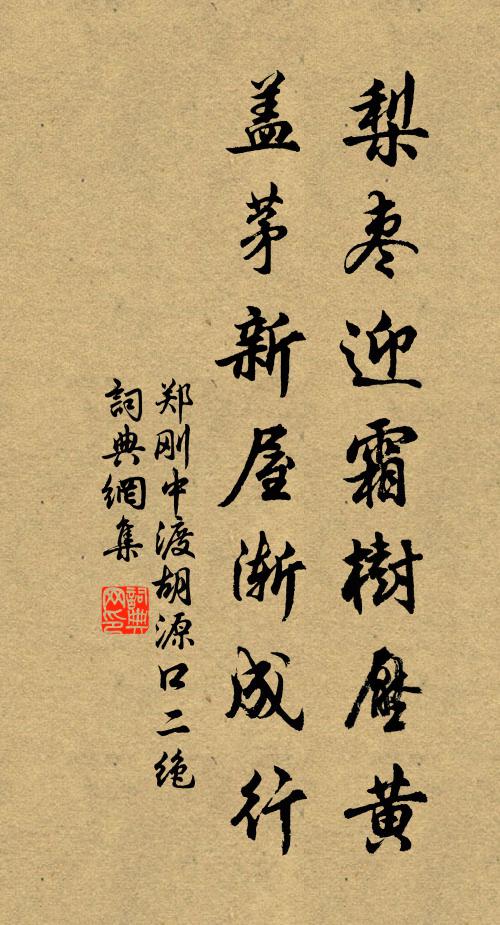 梨枣迎霜樹壓黃
盖茅新屋渐成行
郑刚中渡胡源口二绝
詞典網集
詞典网印